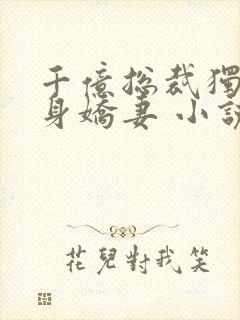 千億総裁獨
身嬌妻 小說
花兒對我笑